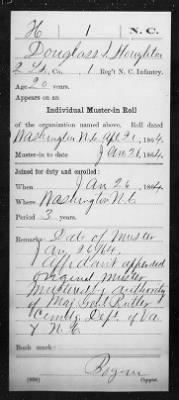 H 1 N. C.
Douglass L Houghton
2 Lt, Co. 1 Reg't N. C. Infantry.
Age 20 years.
Appears on an
Individual Muster-in Roll
of the organization named above. Roll dated
Washington N.C. Apl 21, 1864.
Muster-in to date Jan 26, 1864.
Joined for duty and enrolled:
When Jan 26, 1864
Where Washington N.C
Period 3 years.
Remarks: Date of Muster
Jan 26/64.
Affidavit appended
Original Muster
Mustered by authority
of Maj Genl Butler
Comdg Dept. of Va
& N.C.
Book mark:
(339) Copyist.